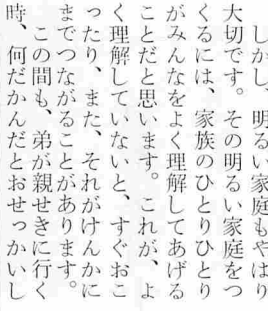 しかし、明るい家庭もやはり
大切です。その明るい家庭をつ
くるには、家族のひとりひとり
がみんなをよく理解してあげる
ことだと思います。これが、よ
く理解していないと、すぐおこ
ったり、また、それがけんかに
までつながることがあります。
この間も、弟が親せきに行く
時、何だかんだとおせっかいし